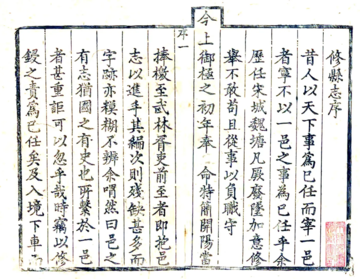 修縣志序
昔人以天下事爲己任而宰一邑
者寧不以一邑之事爲己任乎余
歷任宋城魏塘凡厥廢墜加意修
舉不敢苟且從事以負職守
今上御極之初年奉 命特簡開陽當
序一
捧檄至武林胥吏前至者即抱邑
志以進乎其編次則殘缺甚多而
字跡亦糢糊不辨余喟然曰邑之
有志猶國之有史也所繫於一邑
者甚重詎可以忽乎哉時竊以修
鋟之責爲己任矣及入境下車而